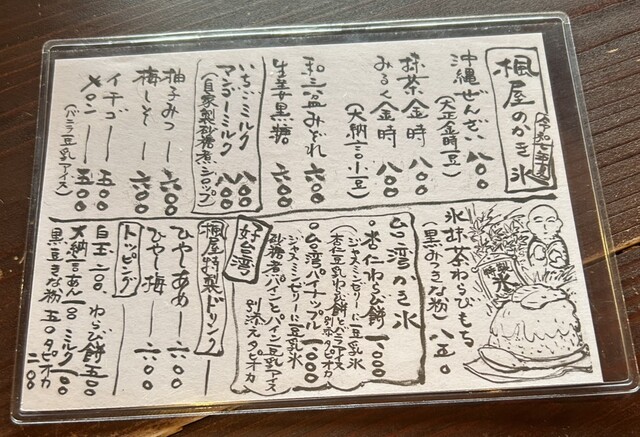 楓屋のかき氷
令和七年夏
沖縄ぜんざい 八〇〇
(大正金時豆)
抹茶金時 八〇〇
みるく金時 八〇〇
(大納言小豆)
和三盆みぞれ 六〇〇
生姜黒糖 六〇〇
いちごミルク 八〇〇
マンゴーミルク 八〇〇
(自家製砂糖煮シロップ)
柚子みつ 六〇〇
梅しそ 六〇〇
イチゴ 五〇〇
メロン 五〇〇
(バニラ豆乳アイス)
特製
氷
氷抹茶わらびもち
(黒みつきな粉) 八五〇
台湾かき氷
杏仁わらび餅 1,000
(ジャスミンゼリーに豆乳氷
杏仁豆乳わらび餅とバニラアイス
別添えタピオカ
台湾パイナップル 1,000
ジャスミンゼリーに豆乳氷
砂糖煮パインとパイン豆乳アイス
別添えタピオカ
好台湾
楓屋特製ドリンク
ひやしあめ 六〇〇
ひやし梅 六〇〇
トッピング
白玉 二〇〇 わらび餅 五〇〇
大納言あん 一〇〇 ミルク 一〇〇
黒豆きな粉 五〇 タピオカ 二〇〇